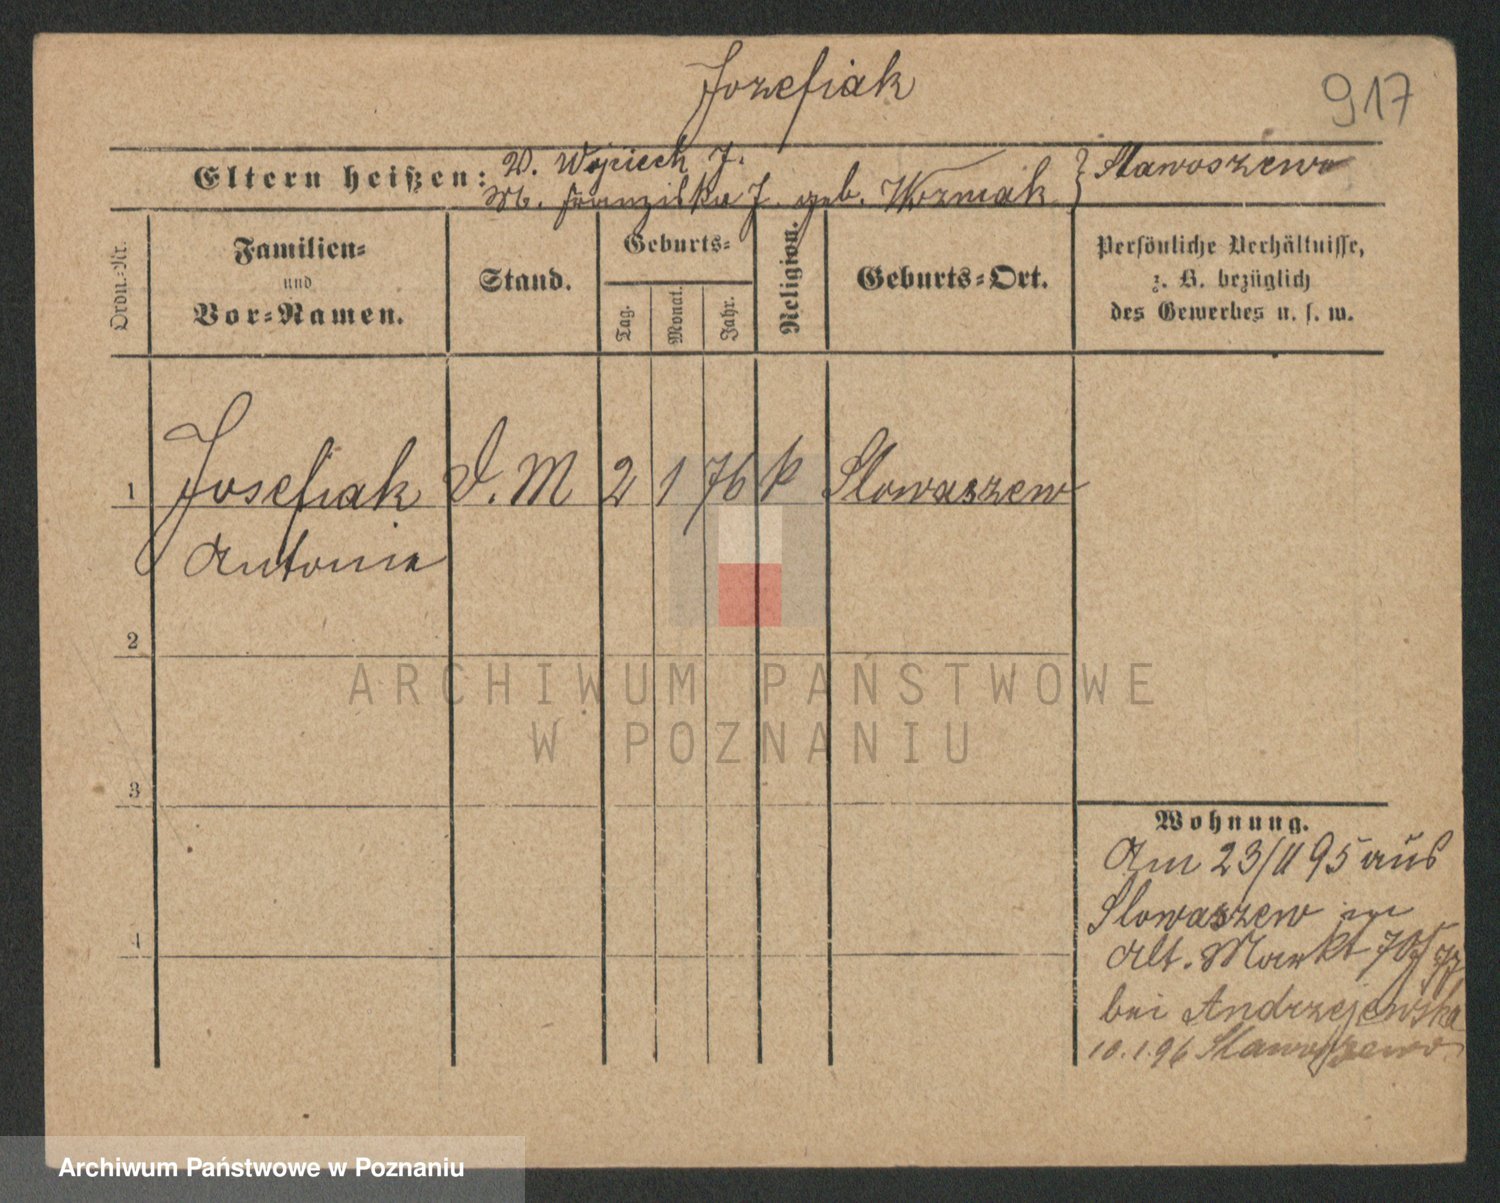 Jozefiak
917
Eltern heißen: V. Wojciech J.
M. Franziska J. geb. Wozniak } Slawoszewo
Ordn.-Nr.
Familien-
und
Vor-Namen.
Stand.
Geburts-
Tag.
Monat.
Jahr.
Religion.
Geburts-Ort.
Persönliche Verhältnisse,
z. B. bezüglich
des Gewerbes u. s. w.
1 Josefiak D. M 2 1 76 k Slowaszew
Antonie
2
3
4
Wohnung.
Am 23/11 95 aus
Slowaszew in
Alt. Markt 70
bei Andrzejewska
10.1.96 Slawoszewo
ARCHIWUM PAŃSTWOWE
W POZNANIU
Archiwum Państwowe w Poznaniu